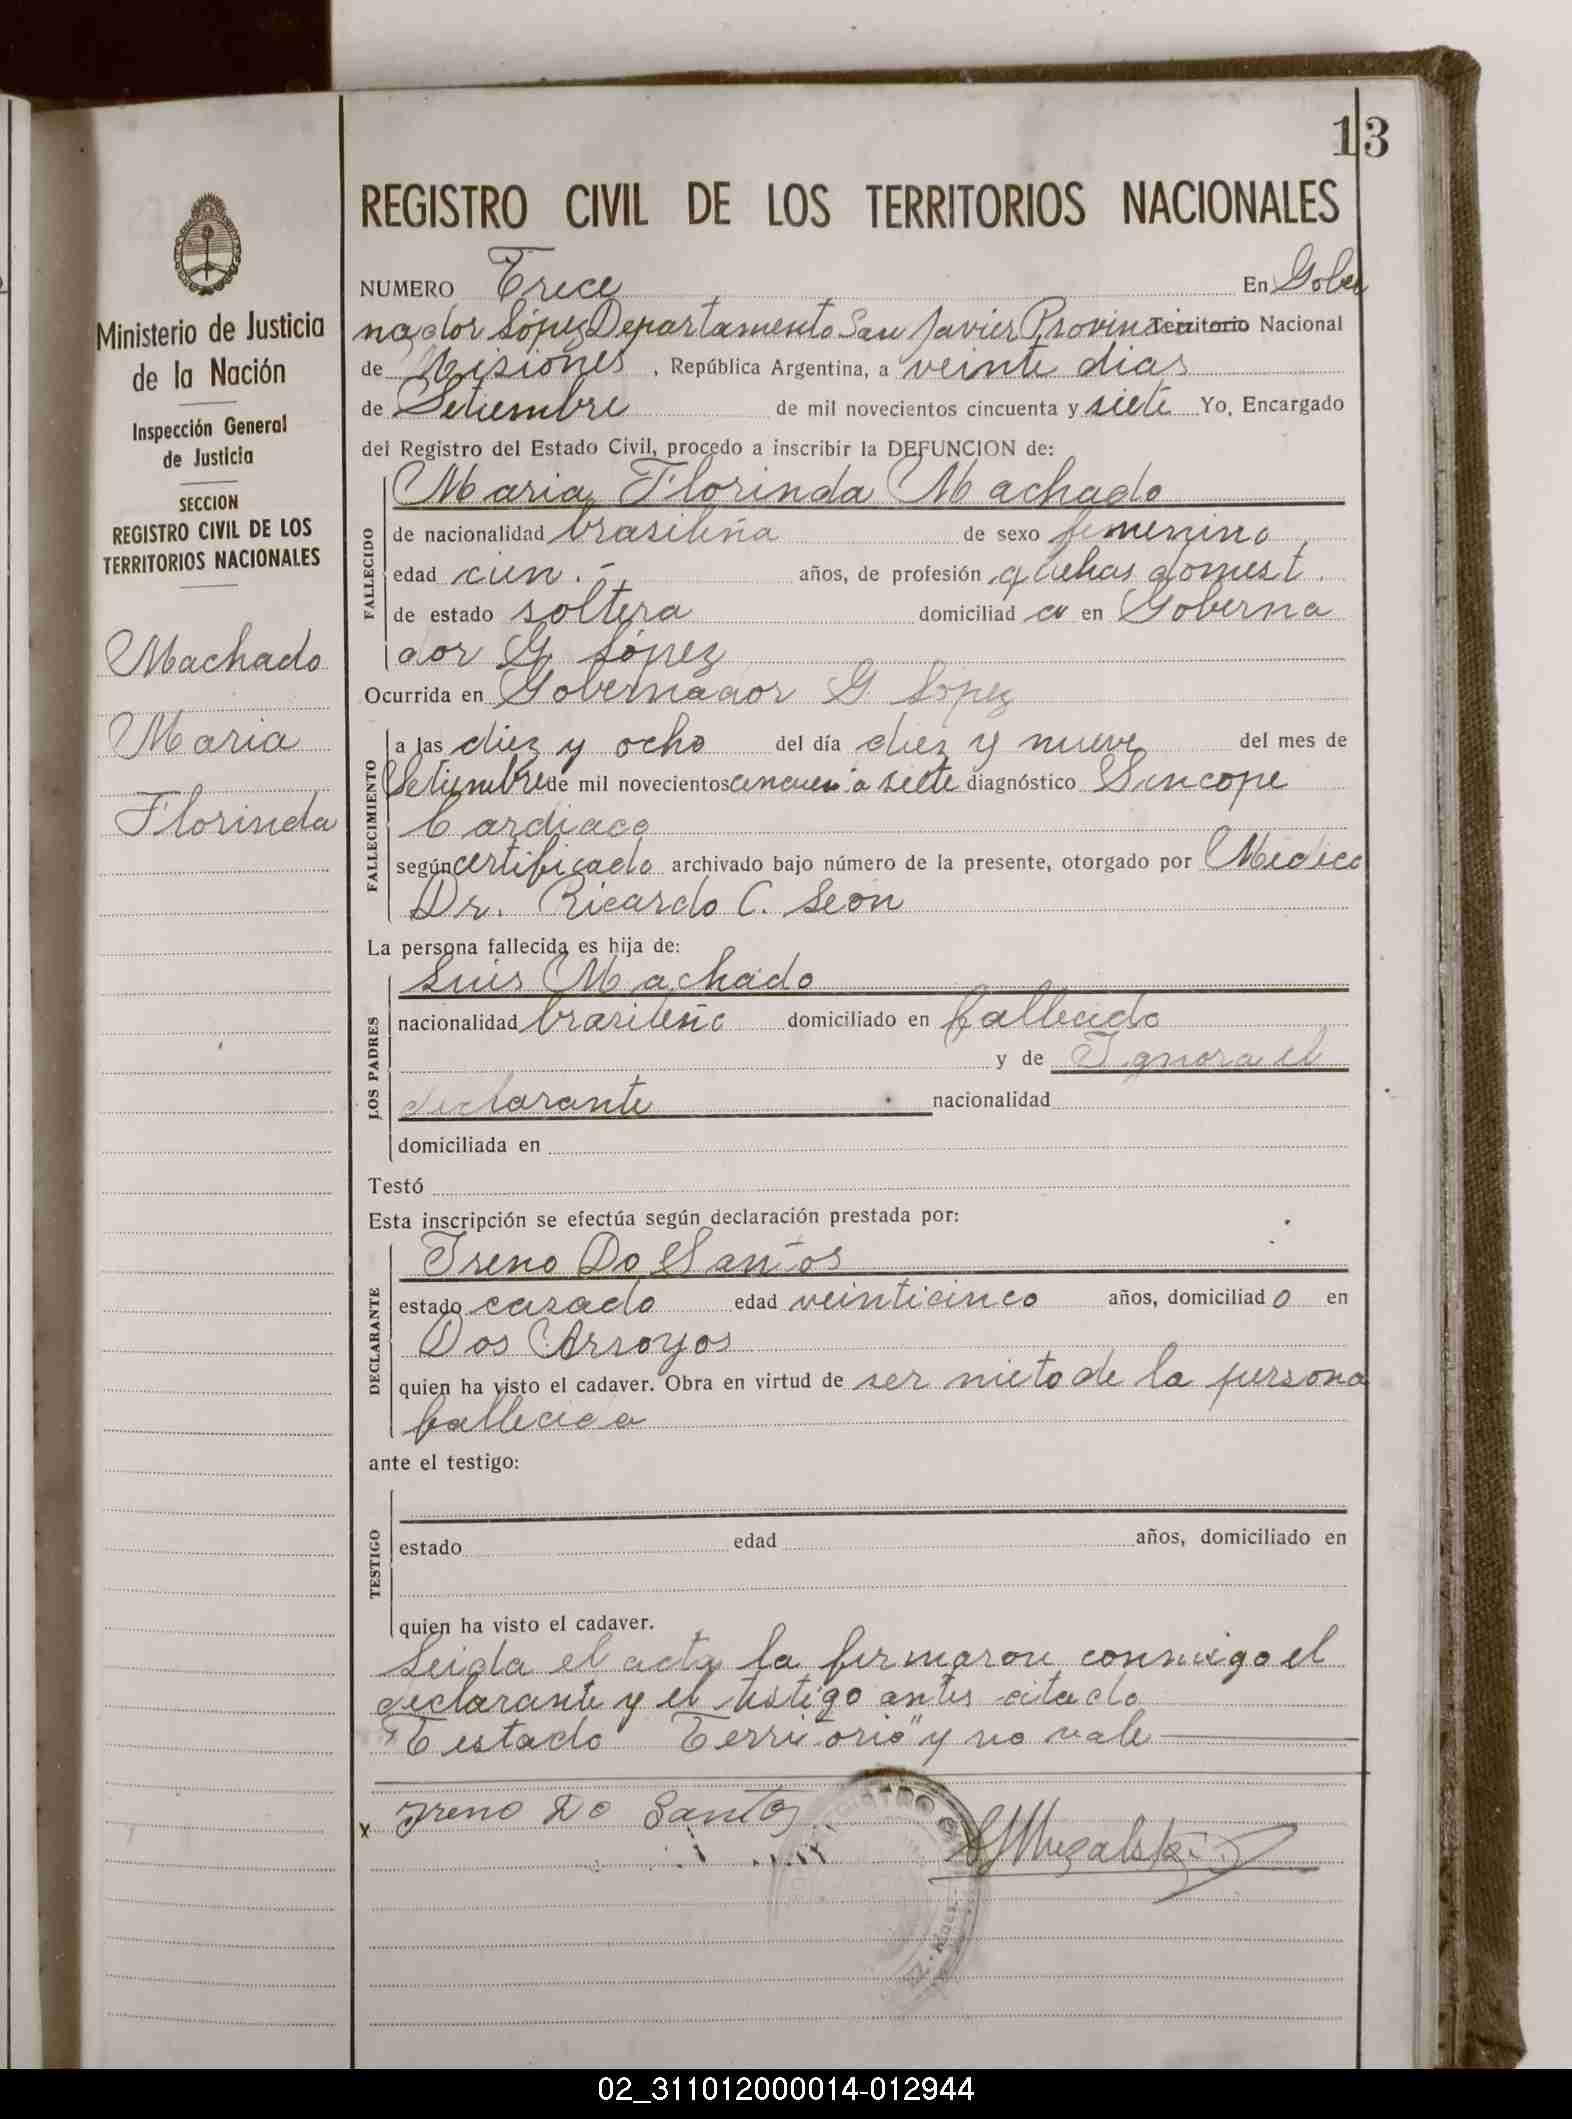 13
REGISTRO CIVIL DE LOS TERRITORIOS NACIONALES
Ministerio de Justicia
de la Nación
Inspección General
de Justicia
SECCION
REGISTRO CIVIL DE LOS
TERRITORIOS NACIONALES
Machado
Maria
Florinda
NUMERO Trece En Gober
nador López Departamento San Javier Provincia Territorio Nacional
de Misiones, República Argentina, a veinte dias
de Setiembre de mil novecientos cincuenta y siete Yo, Encargado
del Registro del Estado Civil, procedo a inscribir la DEFUNCION de:
FALLECIDO
Maria Florinda Machado
de nacionalidad brasileña de sexo femenino
edad cien.- años, de profesión quehas domest.
de estado soltera domiciliada en Goberna
dor G. López
Ocurrida en Gobernador G. López
FALLECIMIENTO
a las diez y ocho del día diez y nueve del mes de
Setiembre de mil novecientos cincuenta siete diagnóstico Sincope
Cardiaco
según certificado archivado bajo número de la presente, otorgado por Médico
Dr. Ricardo C. Seon
La persona fallecida es hija de:
LOS PADRES
Luis Machado
nacionalidad brasileño domiciliado en fallecido
y de Ignora el
declarante nacionalidad
domiciliada en
Testó
Esta inscripción se efectúa según declaración prestada por:
DECLARANTE
Ireno Do Santos
estado casado edad veinticinco años, domiciliado en
Dos Arroyos
quien ha visto el cadaver. Obra en virtud de ser nieto de la persona
fallecida
ante el testigo:
TESTIGO
estado edad años, domiciliado en
quien ha visto el cadaver.
Leida el acta la firmaron conmigo el
declarante y el testigo antes citado
"Testado Territorio" y no vale
x Ireno Do Santos
02_311012000014-012944